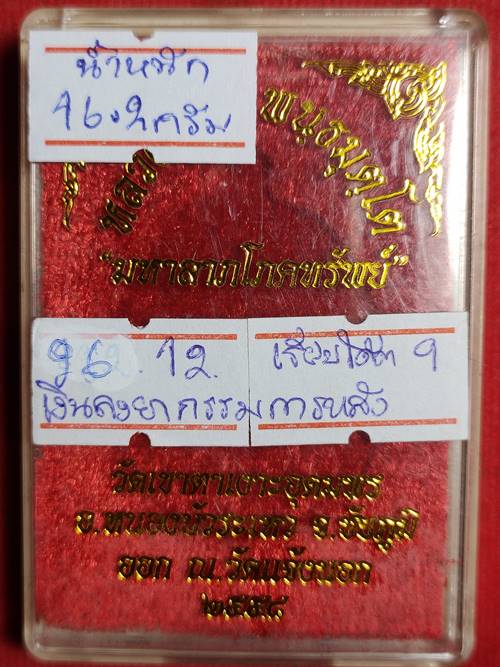 น้ำหนัก
16.2 ครัม
หลว พนฺธมุตฺโต
"มหาลาภโภคทรัพย์"
96.12. เรียบโต๊ต 9
เงินลงยากรรมการหลัง
วัดเขาตาเงาะอุดมพร
อ.หนองบัวระเหว จ.ชัยภูมิ
ออก ณ.วัดแจ้งนอก
๒๕๕๔